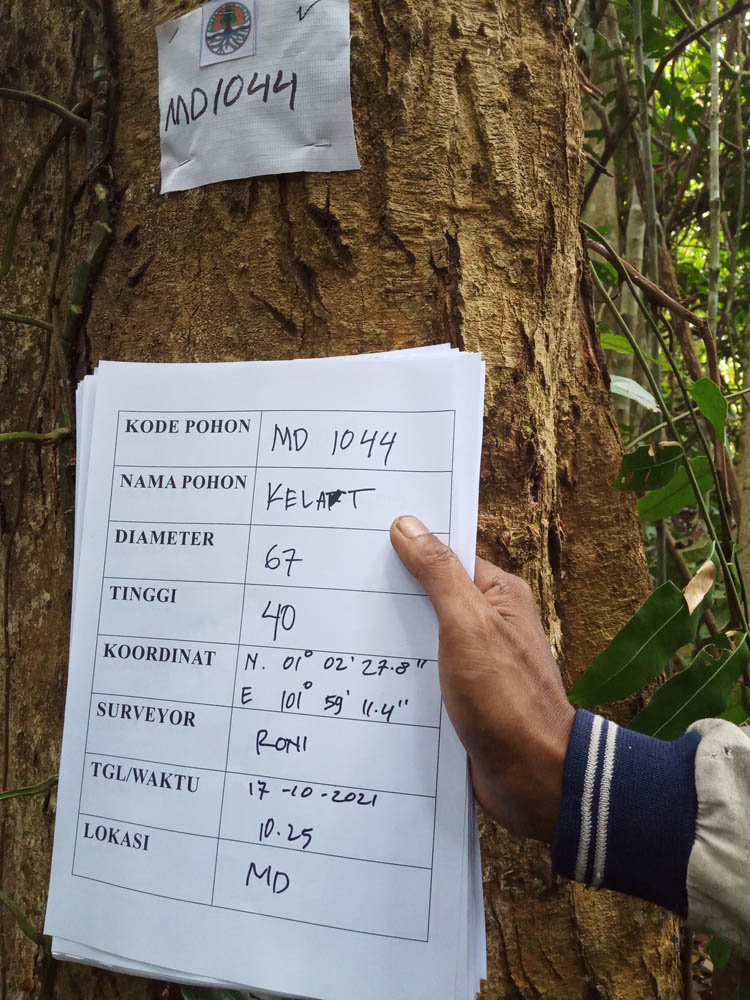 MD1044
KODE POHON MD 1044
NAMA POHON KELAT
DIAMETER 67
TINGGI 40
KOORDINAT N. 01° 02' 27.8"
E 101° 59' 11.4"
SURVEYOR RONI
TGL/WAKTU 17-10-2021
10.25
LOKASI MD